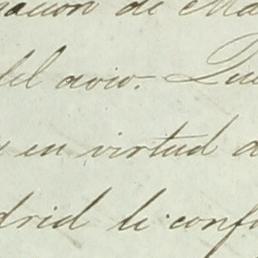 nacion de Ma
del avio. Que
y en virtud d
drid le conf